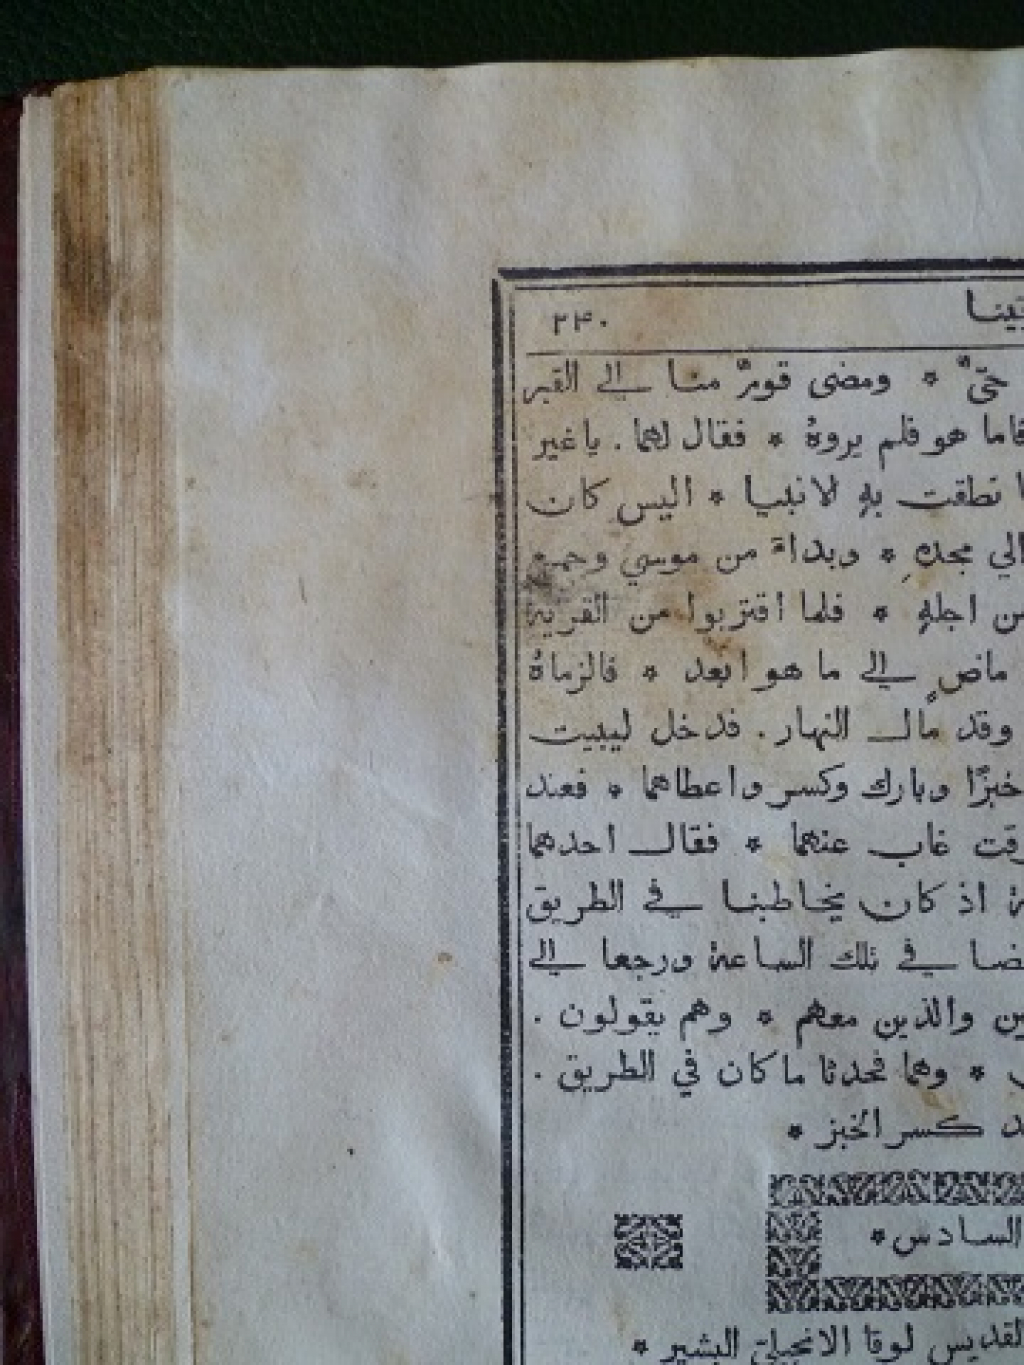 ٢٤٠
حيٌّ * ومضى قومٌ منا الى القبر
فاما هو فلم يروهُ * فقال لهما . ياغير
نطقت بهِ الانبيا * اليس كان
الي مجدهِ * وبداة من موسي وجميع
من اجلهِ * فلما اقتربوا من القرية
ماضٍ الى ما هو ابعد * فالزماهُ
وقد مال النهار . فدخل ليبيت
خبزًا وبارك وكسر واعطاهما * فعند
غاب عنهما * فقال احدهما
اذ كان يخاطبنا في الطريق
في تلك الساعة ورجعا الى
والذين معهم * وهم يقولون .
* وهما فحدثا ما كان في الطريق .
كسر الخبز *
السادس *
القديس لوقا الانجيلي البشير *